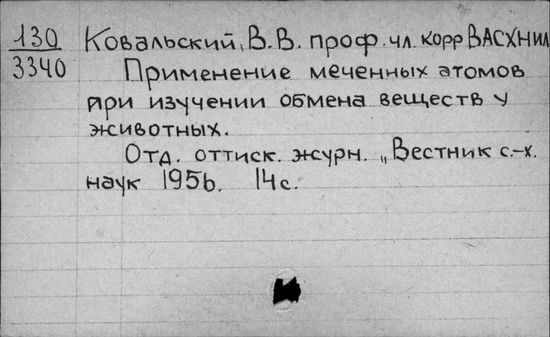 130 Ковальский, В.В. проф. чл. корр ВАСХНИЛ
3340 Применение меченных атомов
при изучении обмена веществ у
животных.
Отд. оттиск. журн. „Вестник с.-х.
наук 1956. 14с.